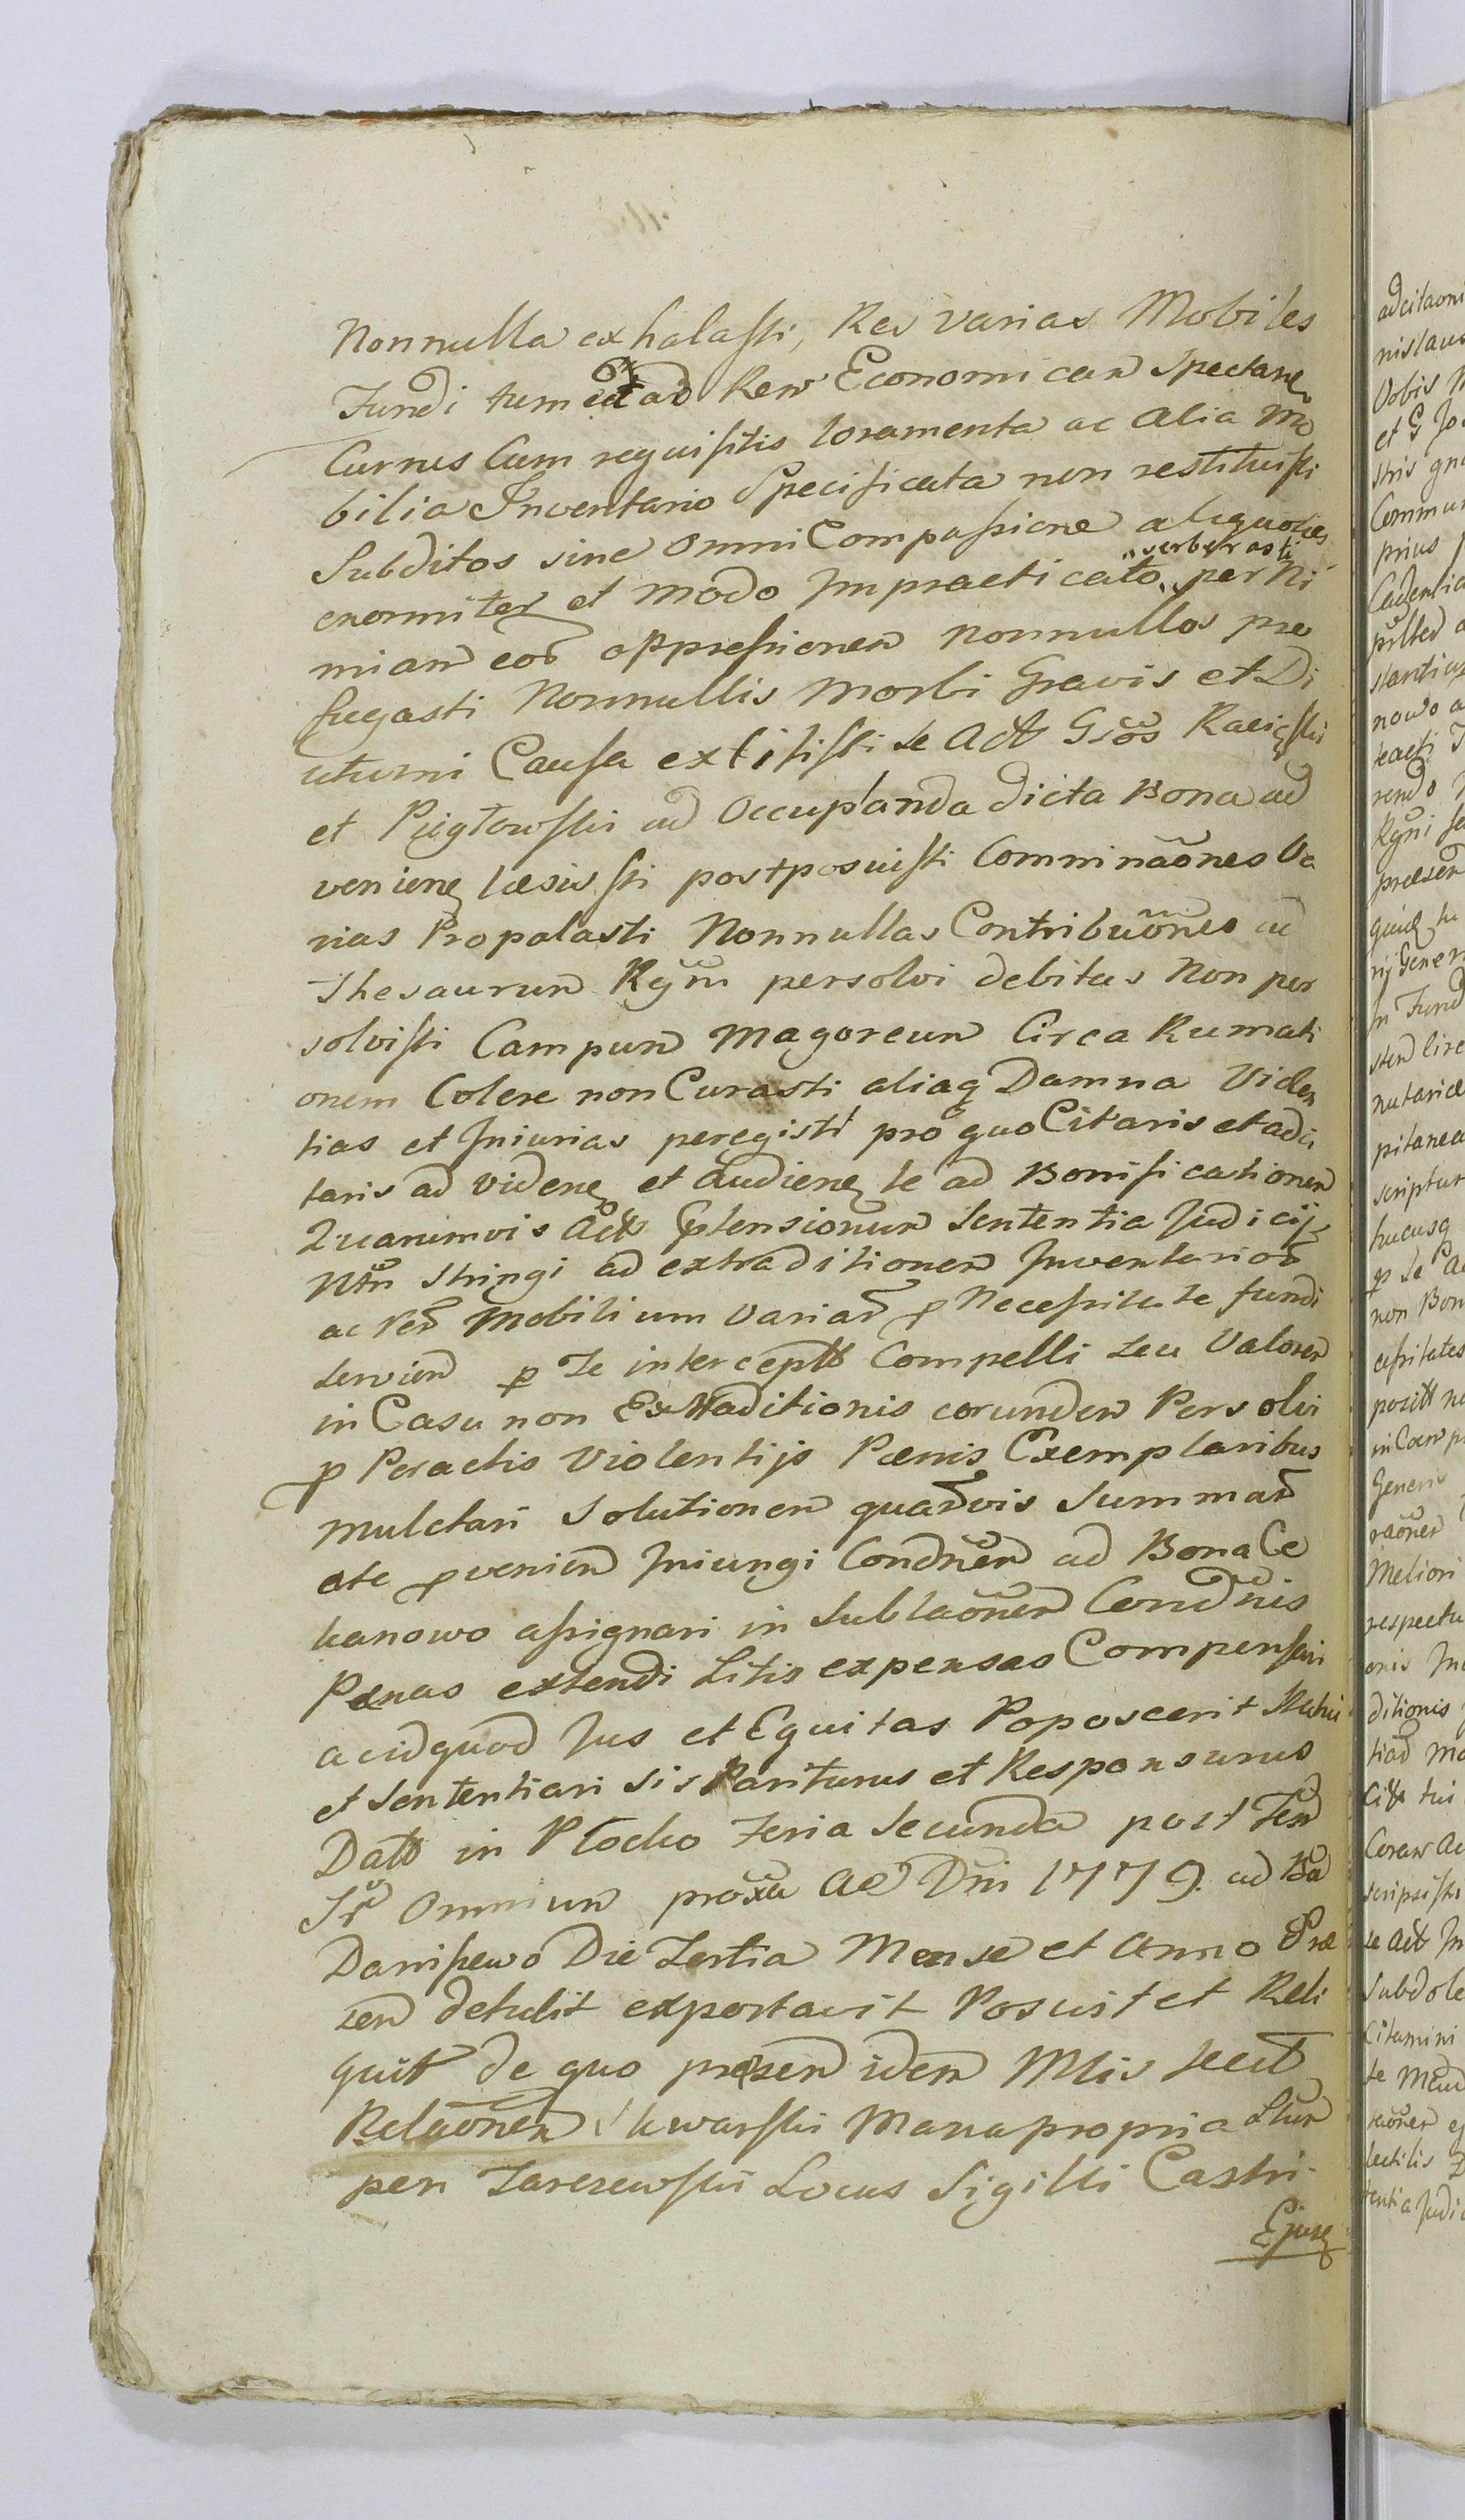 Nonnulla exhalasti, Res varias Mobiles
Fundi tum et ad Rem Economicam Spectanẽ
Currus Cum requisitis loramenta ac alia Mo
bilia Inventario Specificata non restituisti
Subditos sine omni Compassione aliquoties
verberasti
enormiter et modo Impracticato per Ni
miam eoř oppressionem nonnullos pro
fugasti Nonnullis Morbi Gravis et Di
uturni Causa extitisti se Actt Grõs
et ad Occupanda dicta Bona ad
venienẽ læsisti postposuisti Comminãones Va
rias Propalasti Nonnullas Contribuõnes ad
Thesaurum Rgni persolvi debitas Non per
solvisti Campum Magoreum Circa Rumati
onem Colere non Curasti aliaq Damna Violen
tias et Iniurias peregisti pro quo Citaris et adci
taris ad videnẽ et audienẽ te ad Bonificationem
Quarumvis Prætensionum Sententia Judicij
Ntri Stringi ad extraditionem Inventarioř
ac Reř Mobilium Variař p Necessitate fundi
servien p Te intercept Compelli seu Valorem
in Casu non Extraditionis eorundem Persolvi
p Peractis Violentijs Pænis Exemplaribus
mulctari Solutionem quarvis Summař
ate pvenien Iniungi Condnem ad Bona Ce
kanowo assignari in Sublaõnem Condnis
Pænas extendi Litis expensas Compensari
ac id quod Jus et Equitas Poposcerit Statui
et Sententiari sis Pariturus et Responsurus
Datt in Płocko Feria Secunda post Fest
Omnium proxa Ao Dni 1779. ad Bã
Daniszewo Die Tertia Mense et Anno Præ
sen detulit exportavit Posuit et Reli
quit de quo præsen idem Mlis
Relãonem Manu propria
per Locus Sigilli Castri.
Ejusẽ